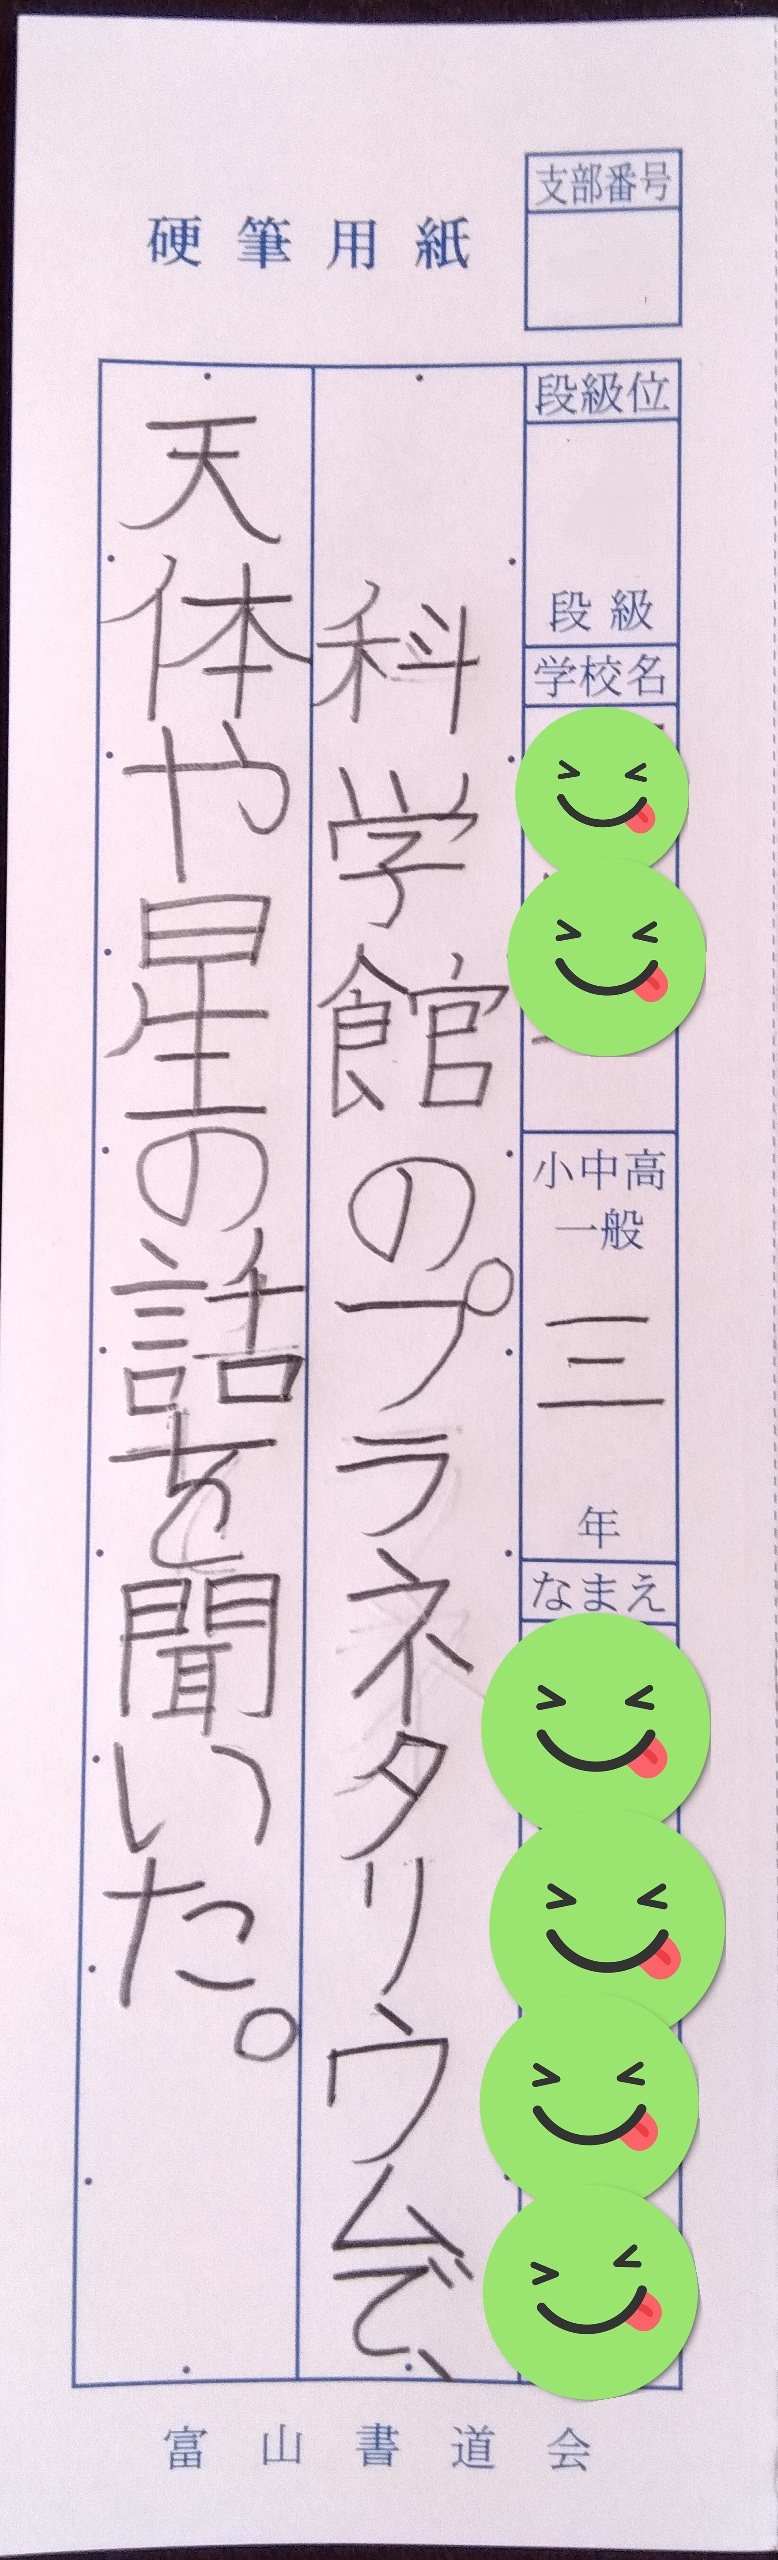 硬筆用紙
支部番号
段級位
段級
学校名
小中高
一般
三
年
なまえ
科学館のプラネタリウムで、
天体や星の話を聞いた。
富山書道会